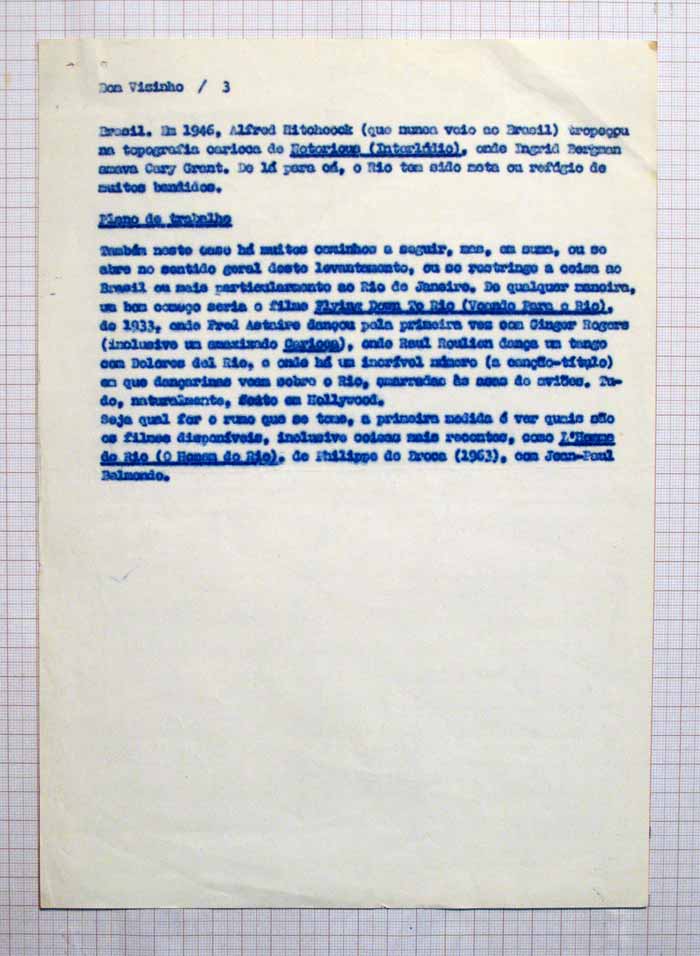 Bom Vizinho / 3
Brasil. Em 1946, Alfred Hitchcock (que nunca veio ao Brasil) tropeçou
na topografia carioca de Notorious (Interlúdio), onde Ingrid Bergman
amava Cary Grant. De lá para cá, o Rio tem sido meta ou refúgio de
muitos bandidos.
Plano de trabalho
Também neste caso há muitos caminhos a seguir, mas, em suma, ou se
abre no sentido geral deste levantamento, ou se restringe a coisa ao
Brasil ou mais particularmente ao Rio de Janeiro. De qualquer maneira,
um bom começo seria o filme Flying Down To Rio (Voando Para o Rio),
de 1933, onde Fred Astaire dançou pela primeira vez com Ginger Rogers
(inclusive um amaxixado Carioca), onde Raul Roulien dança um tango
com Dolores del Rio, e onde há um incrível número (a canção-título)
em que dançarinas voam sobre o Rio, amarradas às asas de aviões. Tu-
do, naturalmente, feito em Hollywood.
Seja qual for o rumo que se tome, a primeira medida é ver quais são
os filmes disponíveis, inclusive coisas mais recentes, como L'Homme
de Rio (O Homem do Rio), de Philippe de Broca (1963), com Jean-Paul
Belmondo.